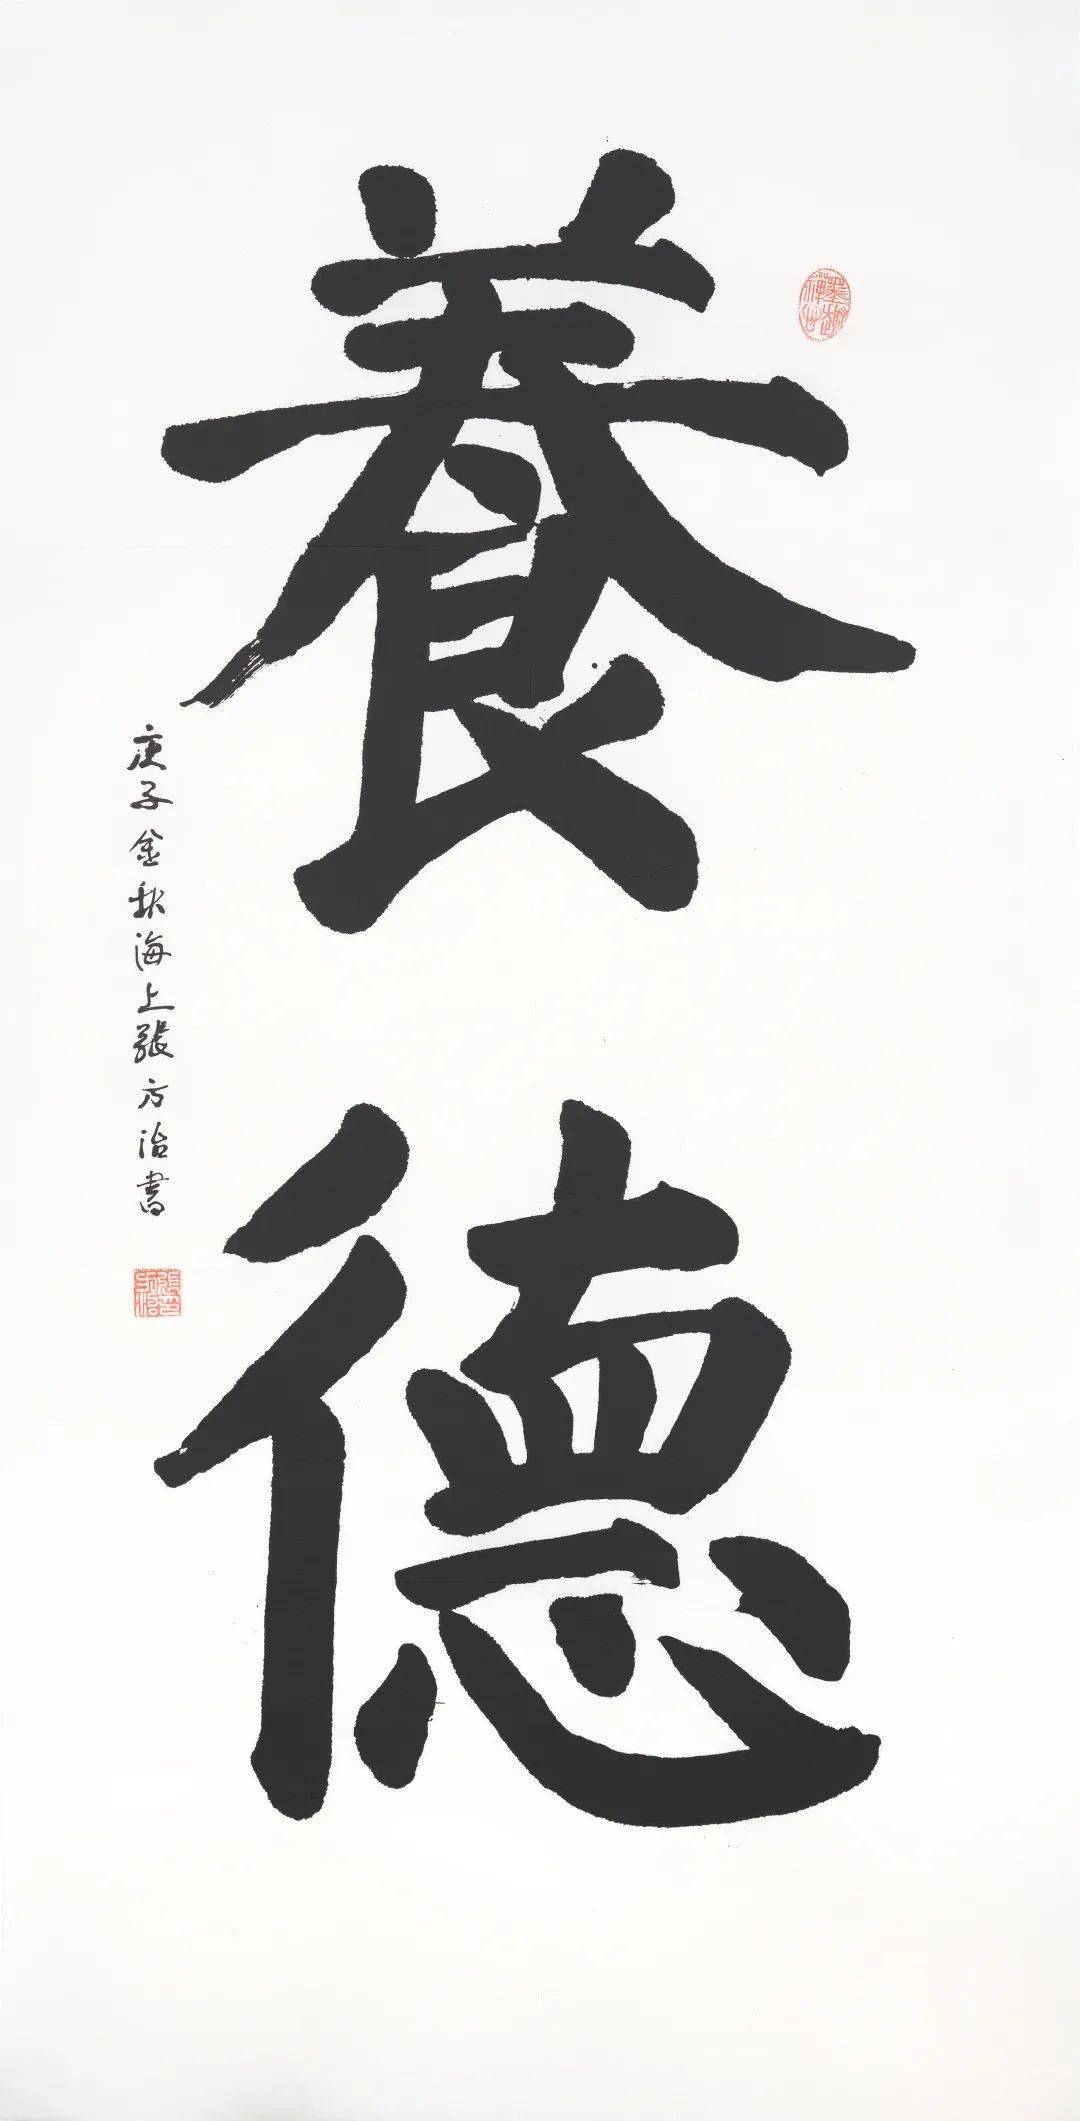 養德
庚子金秋海上張方治書